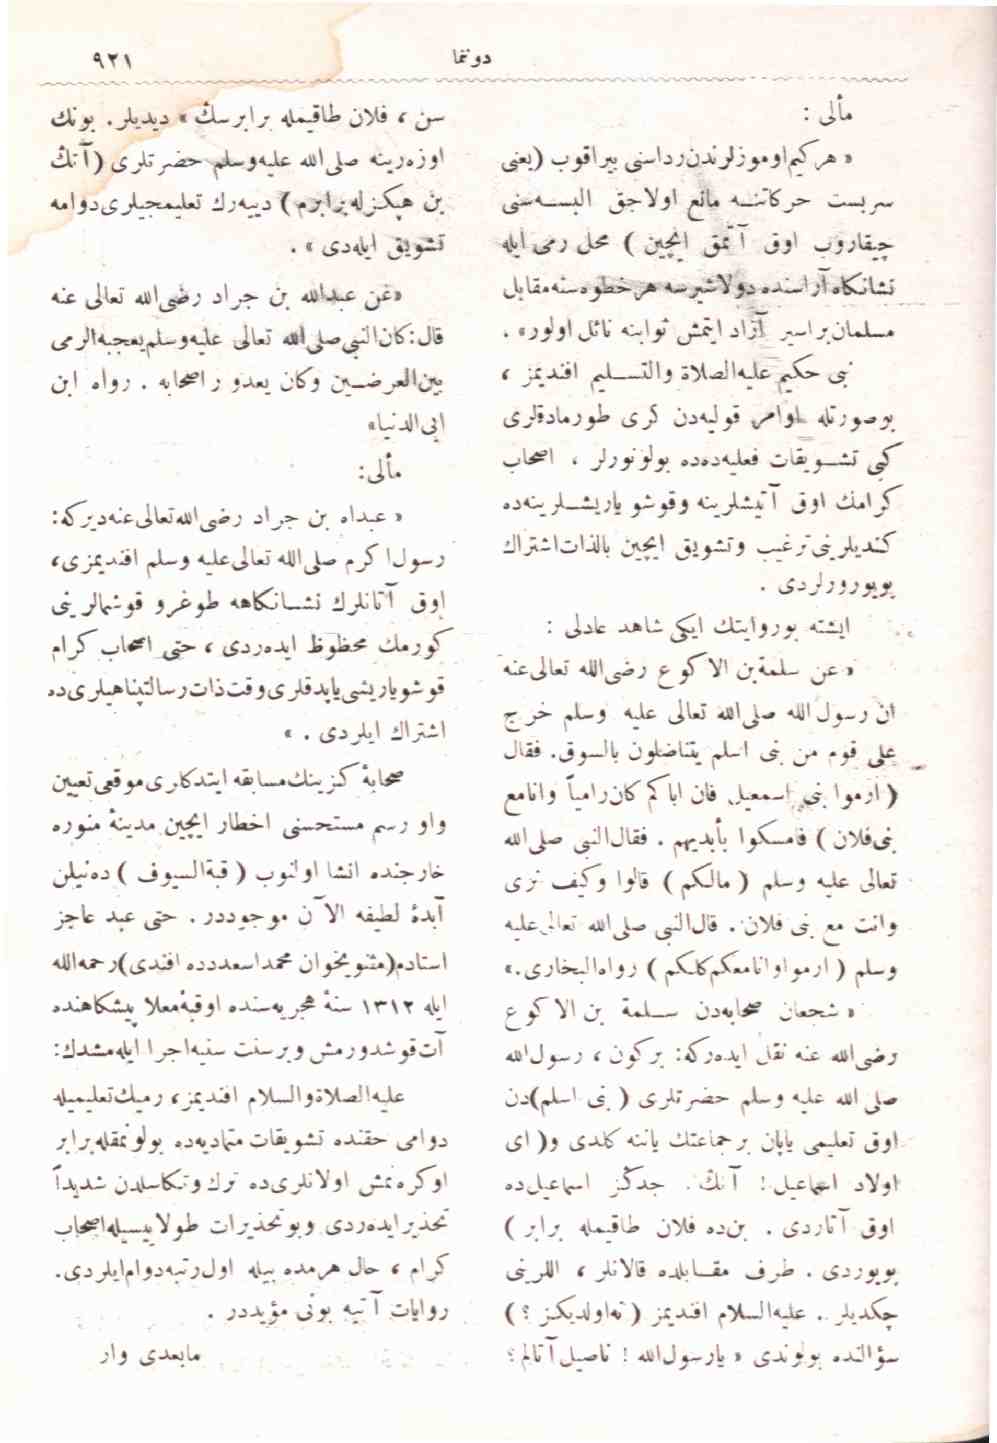 دوننما
٩٢١
مآلی :
« هر کیم اوموزلرندن رداسنی بیراقوب (یعنی
سربست حرکاتنه مانع اولاجق البسه‌سنی
چیقاروب اوق آتمق ایچین ) محل رمی ایله
نشانکاه آراسنده دولاشیرسه هر خطوه‌سنه مقابل
مسلمان بر اسیر آزاد ایتمش ثوابنه نائل اولور» .
نبی حکیم علیه‌الصلاة والتسلیم افندیمز ،
بو صورتله اوامر قولیه‌دن کری طورمادقلری
کبی تشویقات فعلیه‌ده‌ده بولونورلر ، اصحاب
کرامك اوق آتیشلرینه وقوشو یاریشلرینه‌ده
کندیلرینی ترغیب وتشویق ایچین بالذات اشتراك
بویورورلردی .
ایشته بو روایتك ایکی شاهد عادلی :
« عن سلمة بن الاکوع رضی‌الله تعالی عنه
ان رسول الله صلی‌الله تعالی علیه وسلم خرج
علی قوم من بنی اسلم یتناضلون بالسوق. فقال
( ارموا بنی اسمعیل فان اباکم کان رامیاً وانا مع
بنی فلان ) فامسکوا بأیدیهم . فقال النبی صلی الله
تعالی علیه وسلم ( مالکم ) قالوا وکیف نرمی
وانت مع بنی فلان . قال النبی صلی الله تعالی علیه
وسلم ( ارموا وانا معکم کلکم ) رواه البخاری.»
« شجعان صحابه‌دن سلمة بن الاکوع
رضی‌الله عنه نقل ایده‌رکه: برکون ، رسول الله
صلی الله علیه وسلم حضرتلری ( بنی اسلم)دن
اوق تعلیمی یاپان بر جماعتك یاننه کلدی و( ای
اولاد اسماعیل ! آتك . جدکز اسماعیل‌ده
اوق آتاردی . بن‌ده فلان طاقیمله برابر )
بویوردی . طرف مقابلده قالانلر ، اللرینی
چکدیلر . علیه‌السلام افندیمز ( نه اولدیکز ؟ )
سؤالنده بولوندی « یا رسول‌الله ! ناصیل آتالم ؟
سن ، فلان طاقیمله برابرسك » دیدیلر. بونك
اوزه‌رینه صلی الله علیه وسلم حضرتلری (آتك
بن هپکزله برابرم) دییه‌رك تعلیمجیلری دوامه
تشویق ایله‌دی » .
«عن عبدالله بن جراد رضی‌الله تعالی عنه
قال: کان النبی صلی الله تعالی علیه وسلم یعجبه الرمی
بین العرضین وکان یعدو و اصحابه . رواه ابن
ابی الدنیا»
مآلی:
« عبداه بن جراد رضی الله تعالی عنه دیرکه:
رسول اکرم صلی الله تعالی علیه وسلم افندیمزی،
اوق آتانلرك نشانکاهه طوغرو قوشمالرینی
کورمك محظوظ ایده‌ردی ، حتی اصحاب کرام
قوشو یاریشی یاپدقلری وقت ذات رسالتپناهیلری‌ده
اشتراك ایلردی . »
صحابهٔ کزینك مسابقه ایتدکاری موقعی تعیین
و او رسم مستحسنی اخطار ایچین مدینهٔ منوره
خارجنده انشا اولنوب ( قبة السیوف ) ده‌نیلن
آبدهٔ لطیفه الآن موجوددر . حتی عبد عاجز
استادم(مثنویخوان محمد اسعد دده افندی)رحمه الله
ایله ١٣١٢ سنهٔ هجریه‌سنده او قبهٔ معلا پیشکاهنده
آت قوشدورمش و بر سنت سنیه اجرا ایله‌مشدك:
علیه الصلاة والسلام افندیمز، رمیك تعلیمیله
دوامی حقنده تشویقات متمادیه‌ده بولونمقله برابر
اوکره‌نمش اولانلری‌ده ترك وتکاسلدن شدیداً
تحذیر ایده‌ردی و بو تحذیرات طولاییسیله اصحاب
کرام ، حال هرمده بیله اول رتبه دوام ایلردی.
روایات آتیه بونی مؤیددر .
مابعدی وار